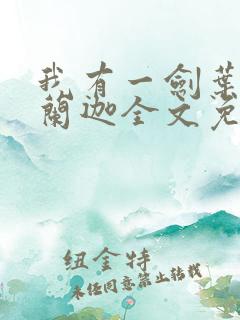 我有一劍葉
蘭迦全文免
纽金特
未经同意禁止转载